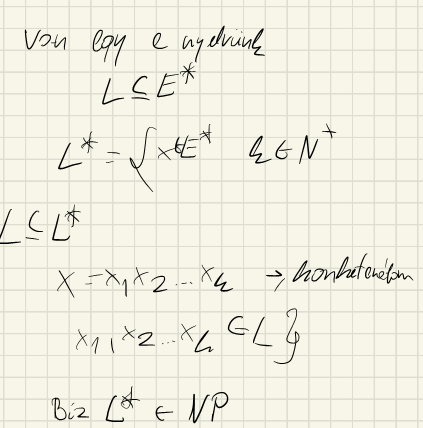 Van egy e nyelvünk
L ⊆ E*
L* = { x ∈ E* k ∈ N⁺
L ⊆ L*
x = x₁x₂...xₖ → konkatenálom
x₁, x₂...xₖ ∈ L }
Biz L* ∈ NP